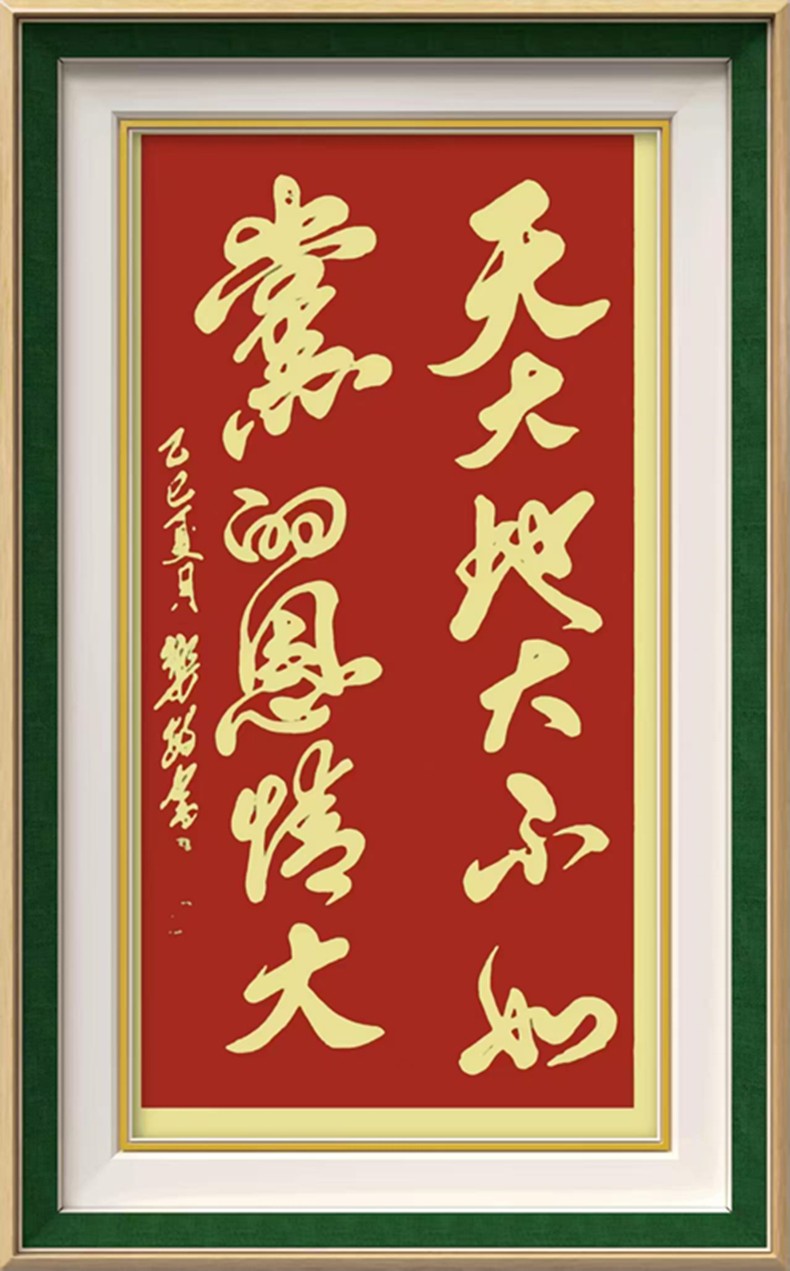 天大地大不如
黨的恩情大
乙巳夏月